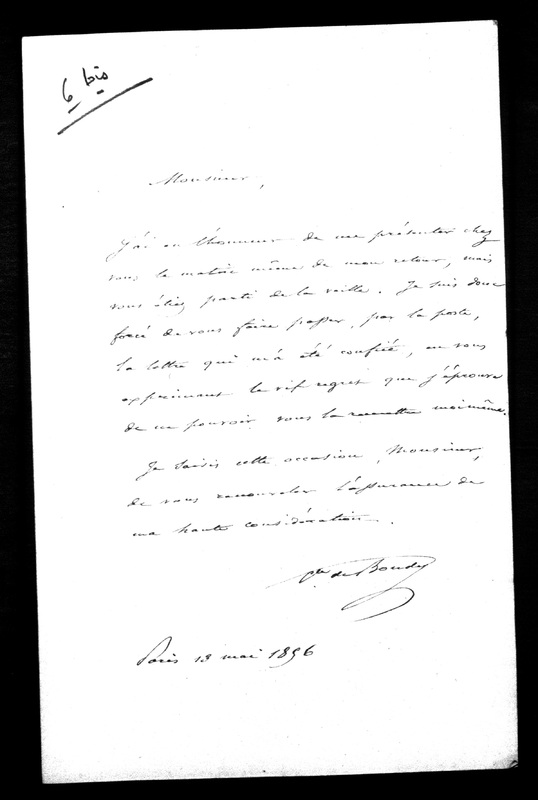 6 bis
Monsieur,
J'ai eu l'honneur de me présenter chez
vous le matin même de mon retour, mais
vous étiez parti de la veille. Je suis donc
forcé de vous faire passer, par la poste,
la lettre qui m'a été confiée, en vous
exprimant le vif regret que j'éprouve
de ne pouvoir vous la remettre moi même.
Je saisis cette occasion, Monsieur,
de vous renouveler l'assurance de
ma haute considération.
Cte de Bondy
Paris 13 mai 1856